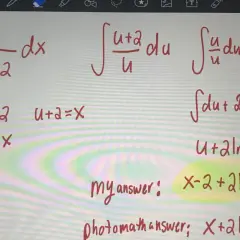 dx ∫ u+2/u du ∫ u/u du
2
2 u+2=x ∫du+2
x u+2l
my answer: x-2+2l
photomath answer: x+2l